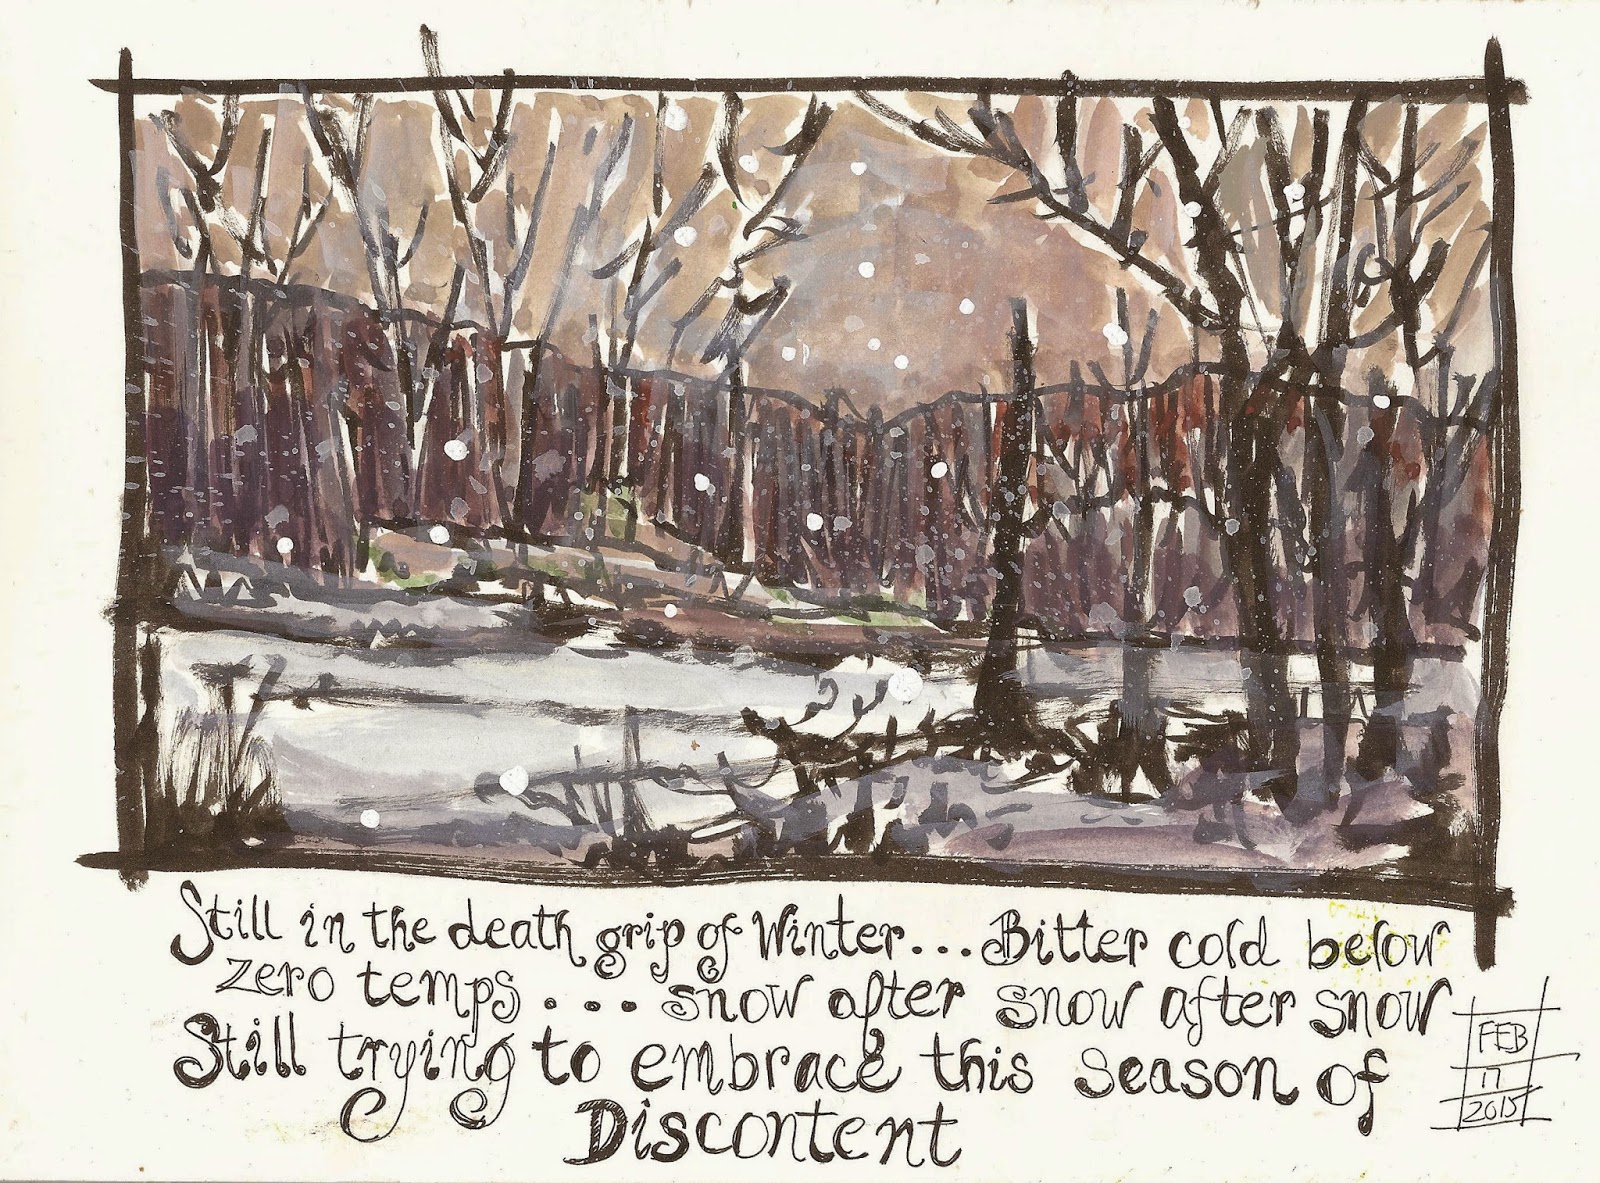 Still in the death grip of Winter... Bitter cold below
zero temps.... snow after snow after snow
Still trying to embrace this season of
Discontent
FEB
17
2015